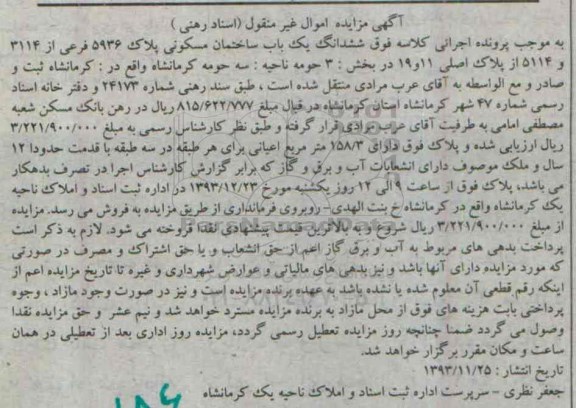 آگهی مزایده اموال غیر منقول (اسناد رهنی)
به موجب پرونده اجرائی کلاسه فوق ششدانگ یک باب ساختمان مسکونی پلاک ۵۹۳۶ فرعی از ۳۱۱۴
و ۵۱۱۴ از پلاک اصلی ۱۱و۱۹ در بخش : ۳ حومه ناحیه : سه حومه کرمانشاه واقع در : کرمانشاه ثبت و
صادر و مع الواسطه به آقای عرب مرادی منتقل شده است ، طبق سند رهنی شماره ۲۴۱۷۳ و دفتر خانه اسناد
رسمی شماره ۴۷ شهر کرمانشاه استان کرمانشاه در قبال مبلغ ۸۱۵/۶۲۲/۷۷۷ ریال در رهن بانک مسکن شعبه
مصطفی امامی به طرفیت آقای عرب مرادی قرار گرفته و طبق نظر کارشناس رسمی به مبلغ ۳/۲۲۱/۹۰۰/۰۰۰
ریال ارزیابی شده و پلاک فوق دارای ۱۵۸/۳ متر مربع اعیانی برای هر طبقه در سه طبقه با قدمت حدودا ۱۲
سال و ملک موصوف دارای انشعابات آب و برق و گاز که برابر گزارش کارشناس اجرا در تصرف بدهکار
می باشد، پلاک فوق از ساعت ۹ الی ۱۲ روز یکشنبه مورخ ۱۳۹۳/۱۲/۲۳ در اداره ثبت اسناد و املاک ناحیه
یک کرمانشاه واقع در کرمانشاه خ بنت الهدی - روبروی فرمانداری از طریق مزایده به فروش می رسد. مزایده
از مبلغ ۳/۲۲۱/۹۰۰/۰۰۰ ریال شروع و به بالاترین قیمت پیشنهادی نقدا فروخته می شود. لازم به ذکر است
پرداخت بدهی های مربوط به آب و برق گاز اعم از حق انشعاب و یا حق اشتراک و مصرف در صورتی
که مورد مزایده دارای آنها باشد و نیز بدهی های مالیاتی و عوارض شهرداری و غیره تا تاریخ مزایده اعم از
اینکه رقم قطعی آن معلوم شده یا نشده باشد به عهده برنده مزایده است و نیز در صورت وجود مازاد ، وجوه
پرداختی بابت هزینه های فوق از محل مازاد به برنده مزایده مسترد خواهد شد و نیم عشر و حق مزایده نقدا
وصول می گردد ضمنا چنانچه روز مزایده تعطیل رسمی گردد، مزایده روز اداری بعد از تعطیلی در همان
ساعت و مکان مقرر برگزار خواهد شد.
تاریخ انتشار : ۱۳۹۳/۱۱/۲۵
جعفر نظری - سرپرست اداره ثبت اسناد و املاک ناحیه یک کرمانشاه